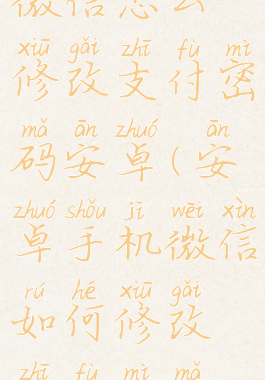 微信怎么
xiū gǎi zhī fù mì
修改支付密
mǎ ān zhuó ān
码安卓(安
zhuó shǒu jī wēi xìn
卓手机微信
rú hé xiū gǎi
如何修改
zhī fù mì mǎ